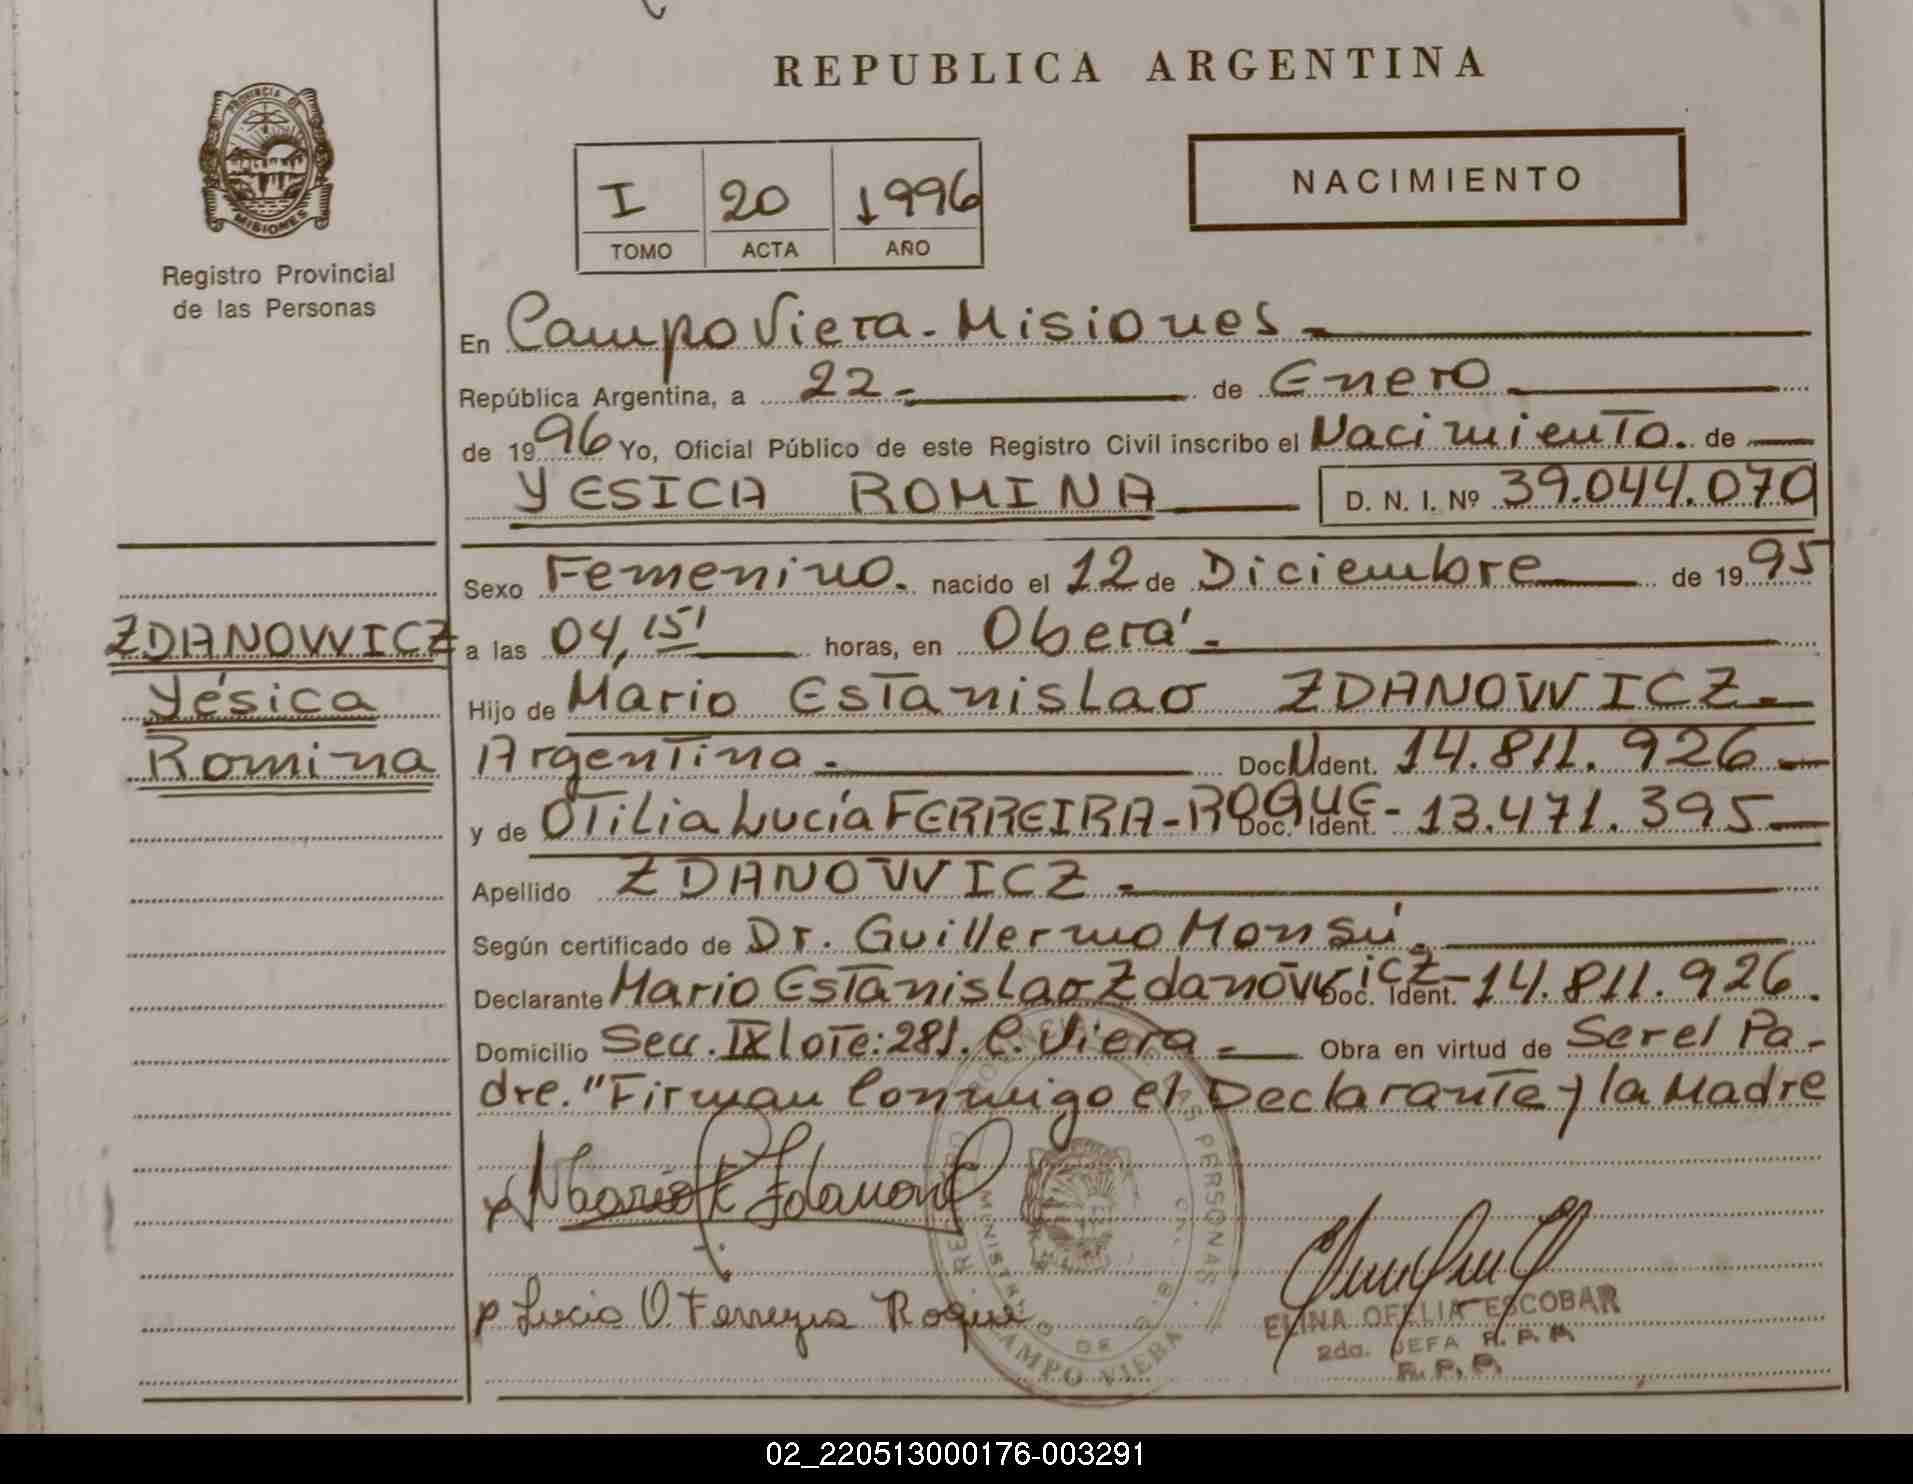 REPUBLICA ARGENTINA
PROVINCIA DE
MISIONES
Registro Provincial
de las Personas
I 20 1996
TOMO ACTA AÑO
NACIMIENTO
En Campo Viera - Misiones
República Argentina, a 22 de Enero
de 1996 Yo, Oficial Público de este Registro Civil inscribo el Nacimiento. de
YESICA ROMINA D. N. I. Nº 39.044.070
Sexo Femenino. nacido el 12 de Diciembre de 1995
ZDANOWICZ
Yésica
Romina
a las 04,15' horas, en Oberá
Hijo de Mario Estanislao ZDANOWICZ.
Argentina. Doc. N. Ident. 14.811.926
y de Otilia Lucía FERREIRA-ROQUE Doc. Ident. - 13.471.395
Apellido ZDANOWICZ
Según certificado de Dr. Guillermo Monsú.
Declarante Mario Estanislao Zdanowicz Doc. Ident. - 14.811.926.
Domicilio Secc. IX lote: 281. C. Viera Obra en virtud de Ser el Pa-
dre. "Firman Conmigo el Declarante y la Madre
Lucia O Ferreyra Roque
PERSONAS
CAMPO VIERA
ELINA OFELIA ESCOBAR
2da. JEFA R. P. P.
R. P. P.
02_220513000176-003291